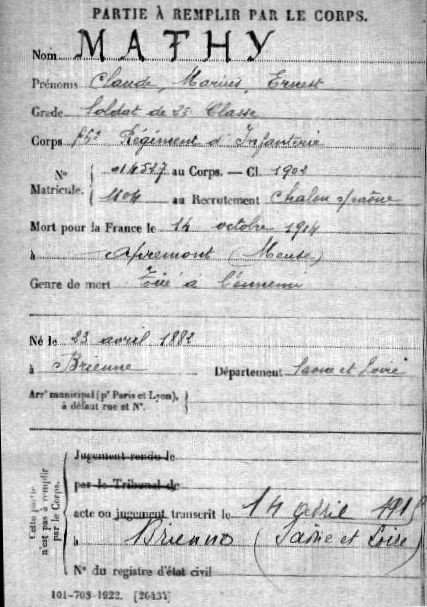 PARTIE À REMPLIR PAR LE CORPS.
Nom MATHY
Prénoms Claude, Marius, Ernest
Grade Soldat de 2e Classe
Corps 95e Régiment d'Infanterie
N° Matricule. { 014527 au Corps. — Cl. 1902
{ 1104 au Recrutement Chalon s/saône
Mort pour la France le 14 octobre 1914
à Apremont (Meuse)
Genre de mort Tué à l'ennemi
Né le 23 avril 1882
à Brienne Département Saone et Loire
Arrt municipal (pr Paris et Lyon), à défaut rue et N°. }
Cette partie n'est pas à remplir par le Corps.
Jugement rendu le
par le Tribunal de
acte ou jugement transcrit le 14 avril 1915
à Brienne (Saône et Loire)
N° du registre d'état civil
101-708-1922. [26434]